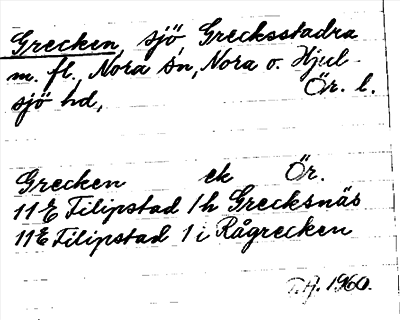 Grecken, sjö Grecksstadra
m. fl., Nora sn, Nora o. Hjul-
sjö hd, Ör. l.
Grecken ek Ör.
11E Filipstad 1h Grecksnäs
11E Filipstad 1i Rågrecken
T.A. 1960.